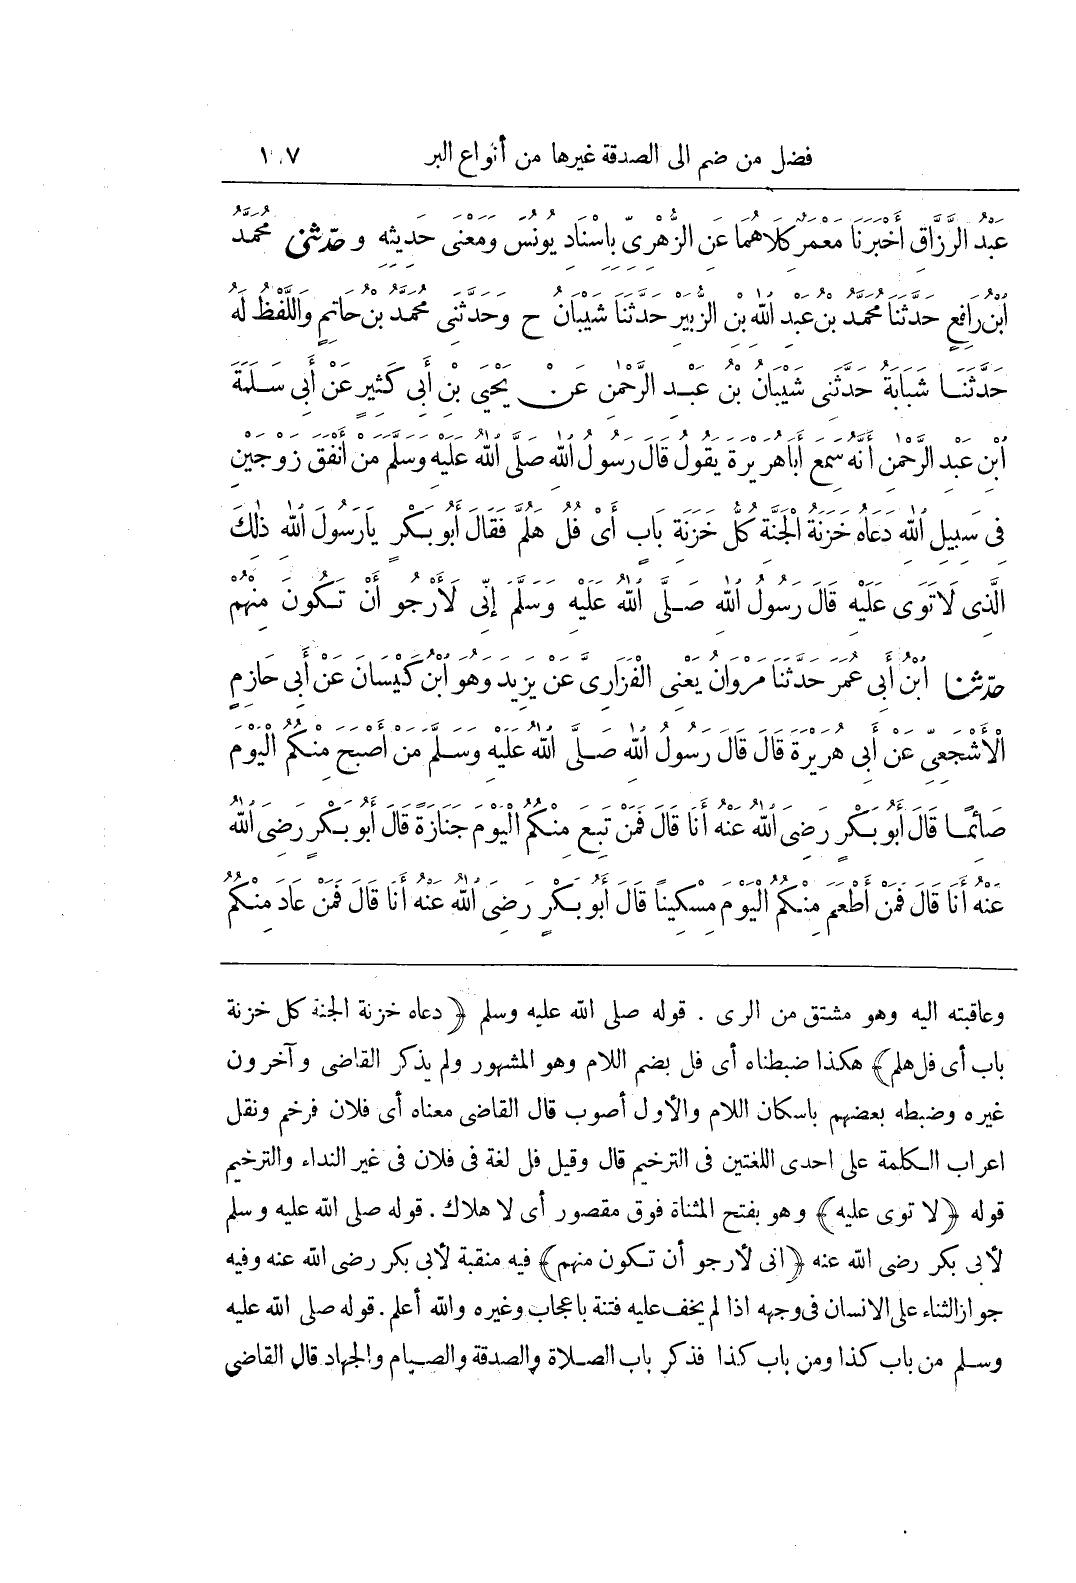 فضل من ضم الى الصدقة غيرها من أنواع البر ١٠٧
عَبْدُ الرَّزَّاقِ أَخْبَرَنَا مَعْمَرٌ كِلَاهُمَا عَنِ الزُّهْرِيِّ بِاسْنَادِ يُونُسَ وَمَعْنَى حَدِيثِهِ و حَدَّثَنِى مُحَمَّدُ
ابْنُ رَافِعٍ حَدَّثَنَا مُحَمَّدُ بْنُ عَبْدِ اللهِ بْنِ الزُّبَيْرِ حَدَّثَنَا شَيْبَانُ ح وَحَدَّثَنِى مُحَمَّدُ بْنُ حَاتِمٍ وَاللَّفْظُ لَهُ
حَدَّثَنَا شَبَابَةُ حَدَّثَنِى شَيْبَانُ بْنُ عَبْدِ الرَّحْمٰنِ عَنْ يَحْيَى بْنِ أَبِى كَثِيرٍ عَنْ أَبِى سَلَمَةَ
ابْنِ عَبْدِ الرَّحْمٰنِ أَنَّهُ سَمِعَ أَبَاهُرَيْرَةَ يَقُولُ قَالَ رَسُولُ اللهِ صَلَّى اللهُ عَلَيْهِ وَسَلَّمَ مَنْ أَنْفَقَ زَوْجَيْنِ
فِى سَبِيلِ اللهِ دَعَاهُ خَزَنَةُ الْجَنَّةِ كُلُّ خَزَنَةِ بَابٍ أَىْ فُلُ هَلُمَّ فَقَالَ أَبُو بَكْرٍ يَارَسُولَ اللهِ ذٰلِكَ
الَّذِى لَا تَوَى عَلَيْهِ قَالَ رَسُولُ اللهِ صَلَّى اللهُ عَلَيْهِ وَسَلَّمَ إِنِّى لَأَرْجُو أَنْ تَكُونَ مِنْهُمْ
حَدَّثَنَا ابْنُ أَبِى عُمَرَ حَدَّثَنَا مَرْوَانُ يَعْنِى الْفَزَارِىَّ عَنْ يَزِيدَ وَهُوَ ابْنُ كَيْسَانَ عَنْ أَبِى حَازِمٍ
الْأَشْجَعِىِّ عَنْ أَبِى هُرَيْرَةَ قَالَ قَالَ رَسُولُ اللهِ صَلَّى اللهُ عَلَيْهِ وَسَلَّمَ مَنْ أَصْبَحَ مِنْكُمُ الْيَوْمَ
صَائِمًا قَالَ أَبُو بَكْرٍ رَضِىَ اللهُ عَنْهُ أَنَا قَالَ فَمَنْ تَبِعَ مِنْكُمُ الْيَوْمَ جَنَازَةً قَالَ أَبُو بَكْرٍ رَضِىَ اللهُ
عَنْهُ أَنَا قَالَ فَمَنْ أَطْعَمَ مِنْكُمُ الْيَوْمَ مِسْكِينًا قَالَ أَبُو بَكْرٍ رَضِىَ اللهُ عَنْهُ أَنَا قَالَ فَمَنْ عَادَ مِنْكُمُ
وعاقبته اليه وهو مشتق من الرى . قوله صلى الله عليه وسلم ﴿ دعاه خزنة الجنة كل خزنة
باب أى فل هلم ﴾ هكذا ضبطناه أى فل بضم اللام وهو المشهور ولم يذكر القاضى وآخرون
غيره وضبطه بعضهم باسكان اللام والأول أصوب قال القاضى معناه أى فلان فرخم ونقل
اعراب الكلمة على احدى اللغتين فى الترخيم قال وقيل فل لغة فى فلان فى غير النداء والترخيم
قوله ﴿ لا توى عليه ﴾ وهو بفتح المثناة فوق مقصور أى لا هلاك . قوله صلى الله عليه وسلم
لأبى بكر رضى الله عنه ﴿ انى لأرجو أن تكون منهم ﴾ فيه منقبة لأبى بكر رضى الله عنه وفيه
جواز الثناء على الانسان فى وجهه اذا لم يخف عليه فتنة باعجاب وغيره والله أعلم . قوله صلى الله عليه
وسلم من باب كذا ومن باب كذا فذكر باب الصلاة والصدقة والصيام والجهاد قال القاضى